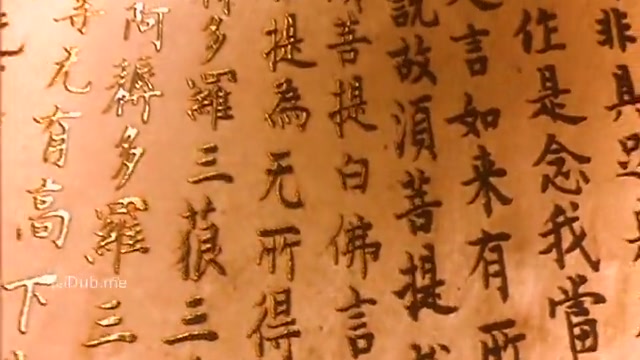 非具足
作是念我當
言如来有所
說故須菩提
菩提白佛言
提為无所得
多羅三藐三
阿耨多羅三
无有高下
iDub.me